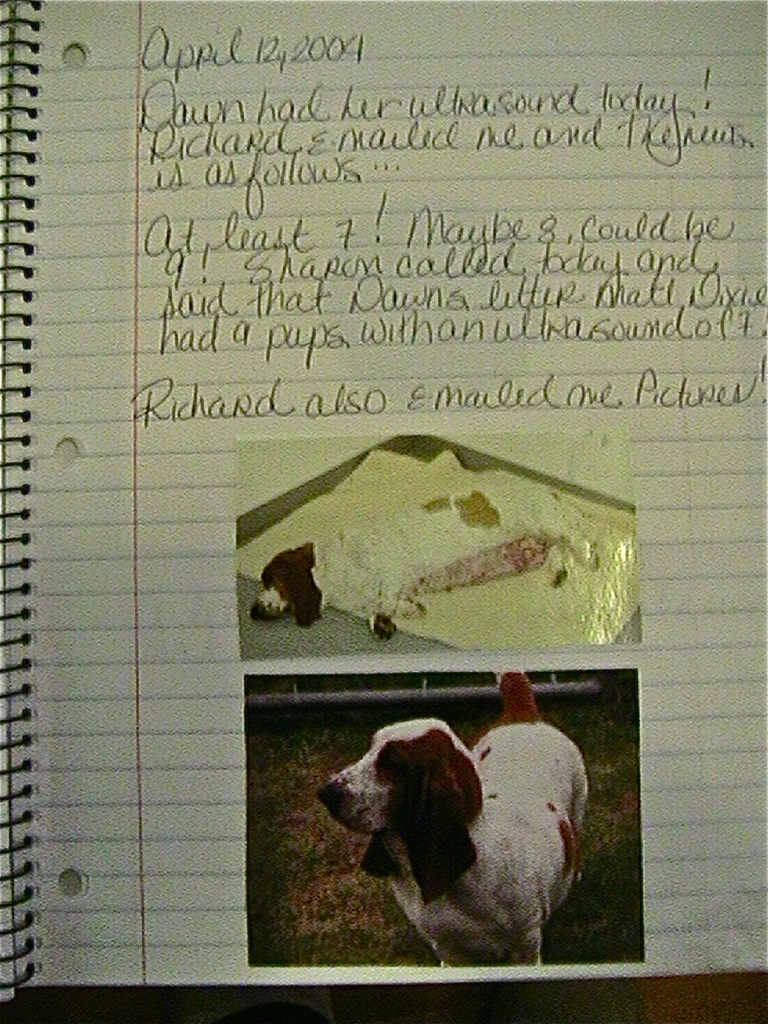 April 12, 2004
Dawn had her ultrasound today!
Richard E-mailed me and the news
is as follows...
At least 7! Maybe 8, could be
9! Sharon called today and
said that Dawns litter mate Dixie
had 9 pups with an ultrasound of 7!
Richard also E-mailed me Pictures!